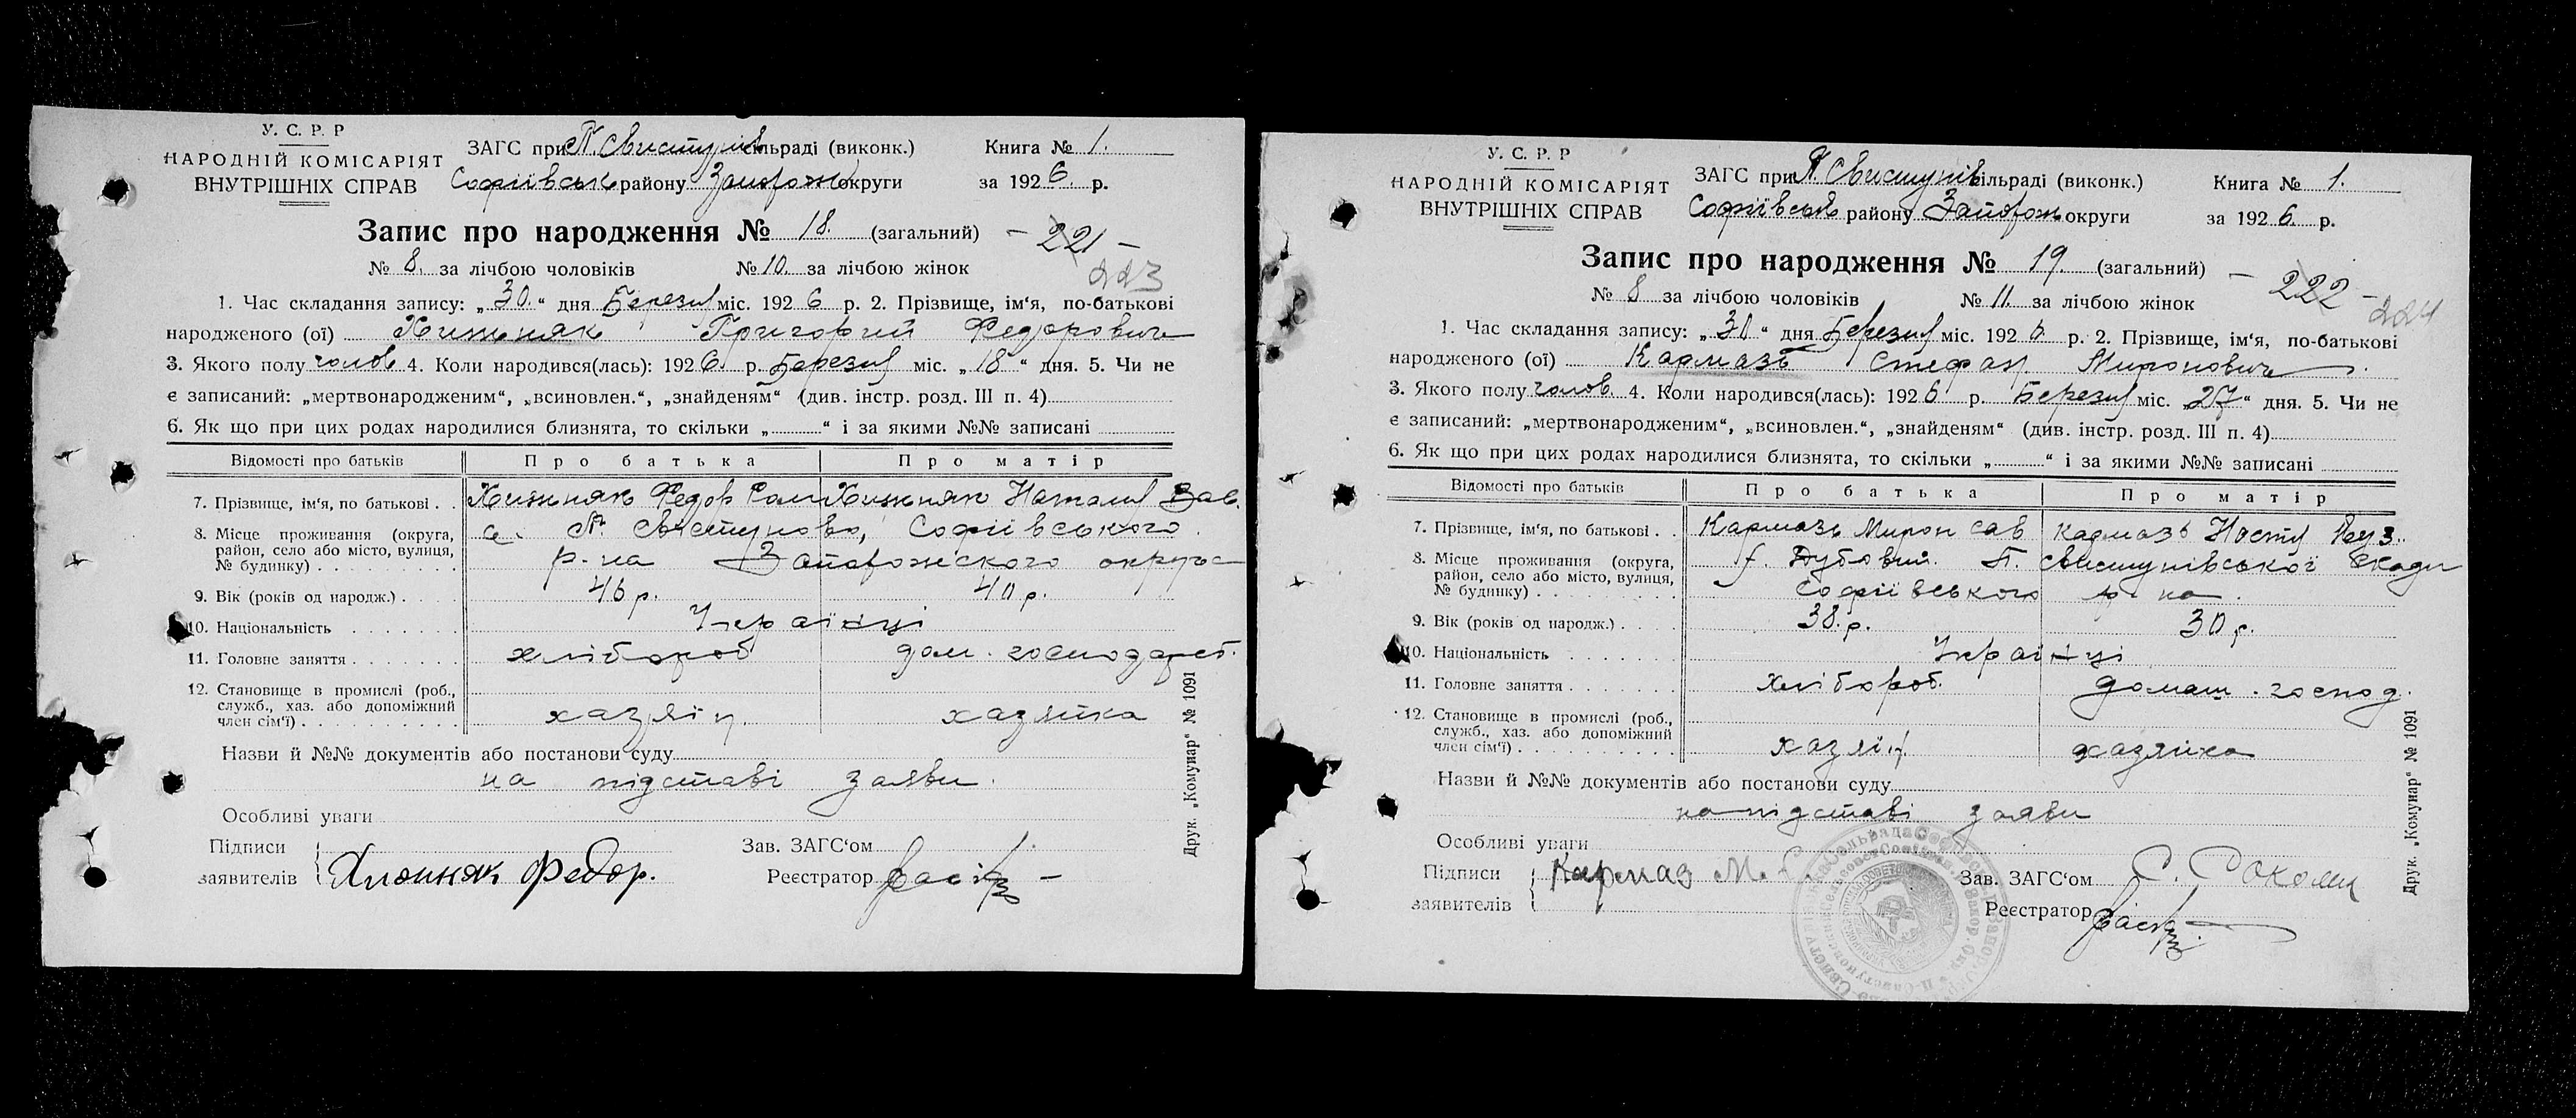 У. С. Р. Р
НАРОДНІЙ КОМІСАРІЯТ
ВНУТРІШНІХ СПРАВ
ЗАГС при П. Свистунів сільраді (виконк.)
Книга № 1.
Софіївськ району Запорож округи
за 1926. р.
Запис про народження № 18. (загальний)
- 221 -
223
№ 8. за лічбою чоловіків № 10. за лічбою жінок
1. Час складання запису: „30.“ дня Березня міс. 1926 р. 2. Прізвище, ім‘я, по-батькові
народженого (ої) Хижняк Григорий Федорович
3. Якого полу чолов 4. Коли народився(лась): 1926. р. Березня міс. „18“ дня. 5. Чи не
є записаний: „мертвонародженим“, „всиновлен.“, „знайденям“ (див. інстр. розд. III п. 4)
6. Як що при цих родах народилися близнята, то скільки „ “ і за якими №№ записані
Відомості про батьків Про батька Про матір
7. Прізвище, ім‘я, по батькові . . Хижняк Федор Хижняк Наталія
8. Місце проживання (округа, район, село або місто, вулиця, № будинку) с. П. Свистуново, Софіївського
р-на Запорожського округа
9. Вік (років од народж.) 46 р. 40 р.
10. Національність Українці
11. Головне заняття хлібороб дом. господарст.
12. Становище в промислі (роб., служб., хаз. або допоміжний член сім‘ї) хазяїн. хазяйка
Назви й №№ документів або постанови суду
на підставі заяви.
Особливі уваги
Підписи
заявителів Хижняк Федор.
Зав. ЗАГС‘ом
Реєстратор
Друк. „Комунар“ № 1091
У. С. Р. Р
НАРОДНІЙ КОМІСАРІЯТ
ВНУТРІШНІХ СПРАВ
ЗАГС при П. Свистунів сільраді (виконк.)
Книга № 1.
Софіївськ району Запорож округи
за 1926. р.
Запис про народження № 19. (загальний)
- 222 -
224
№ 8 за лічбою чоловіків № 11. за лічбою жінок
1. Час складання запису: „30“ дня Березня міс. 1926 р. 2. Прізвище, ім‘я, по-батькові
народженого (ої) Кармазь Стефан Миронович
3. Якого полу чолов. 4. Коли народився(лась): 1926 р. Березня міс. „27“ дня. 5. Чи не
є записаний: „мертвонародженим“, „всиновлен.“, „знайденям“ (див. інстр. розд. III п. 4)
6. Як що при цих родах народилися близнята, то скільки „ “ і за якими №№ записані
Відомості про батьків Про батька Про матір
7. Прізвище, ім‘я, по батькові . . Кармазь Мирон Сав Кармазь Настя
8. Місце проживання (округа, район, село або місто, вулиця, № будинку) х. Дубовий. П. Свистунівської
Софіївського р-на.
9. Вік (років од народж.) 38. р. 30 р.
10. Національність Українці
11. Головне заняття хлібороб. домаш. господ.
12. Становище в промислі (роб., служб., хаз. або допоміжний член сім‘ї) хазяїн хазяйка
Назви й №№ документів або постанови суду
на підставі заяви
Особливі уваги
Підписи
заявителів Кармаз М. С.
Зав. ЗАГС‘ом
Реєстратор
Друк. „Комунар“ № 1091